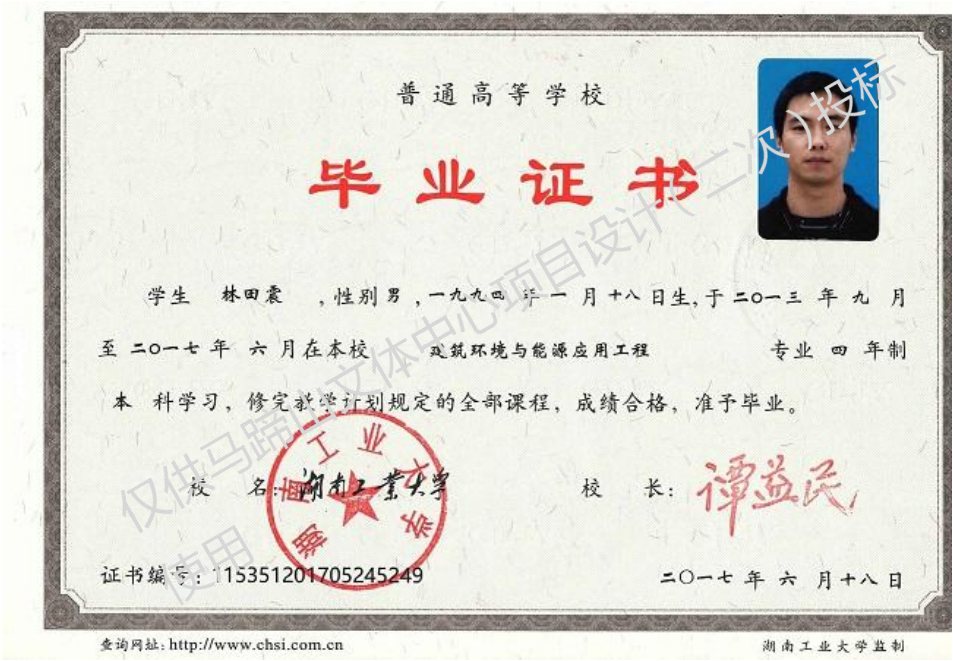 普通高等学校
毕业证书
学生 林田震 ,性别男,一九九四年一月十八日生,于二〇一三年九月
至二〇一七年六月在本校 建筑环境与能源应用工程 专业 四 年制
本 科学习,修完教学计划规定的全部课程,成绩合格,准予毕业。
校 名:湖南工业大学 校 长:谭益民
湖南工业大学
证书编号:115351201705245249 二〇一七年六月十八日
查询网址:http://www.chsi.com.cn 湖南工业大学监制
仅供马蹄山文体中心项目设计(二次)投标
使用